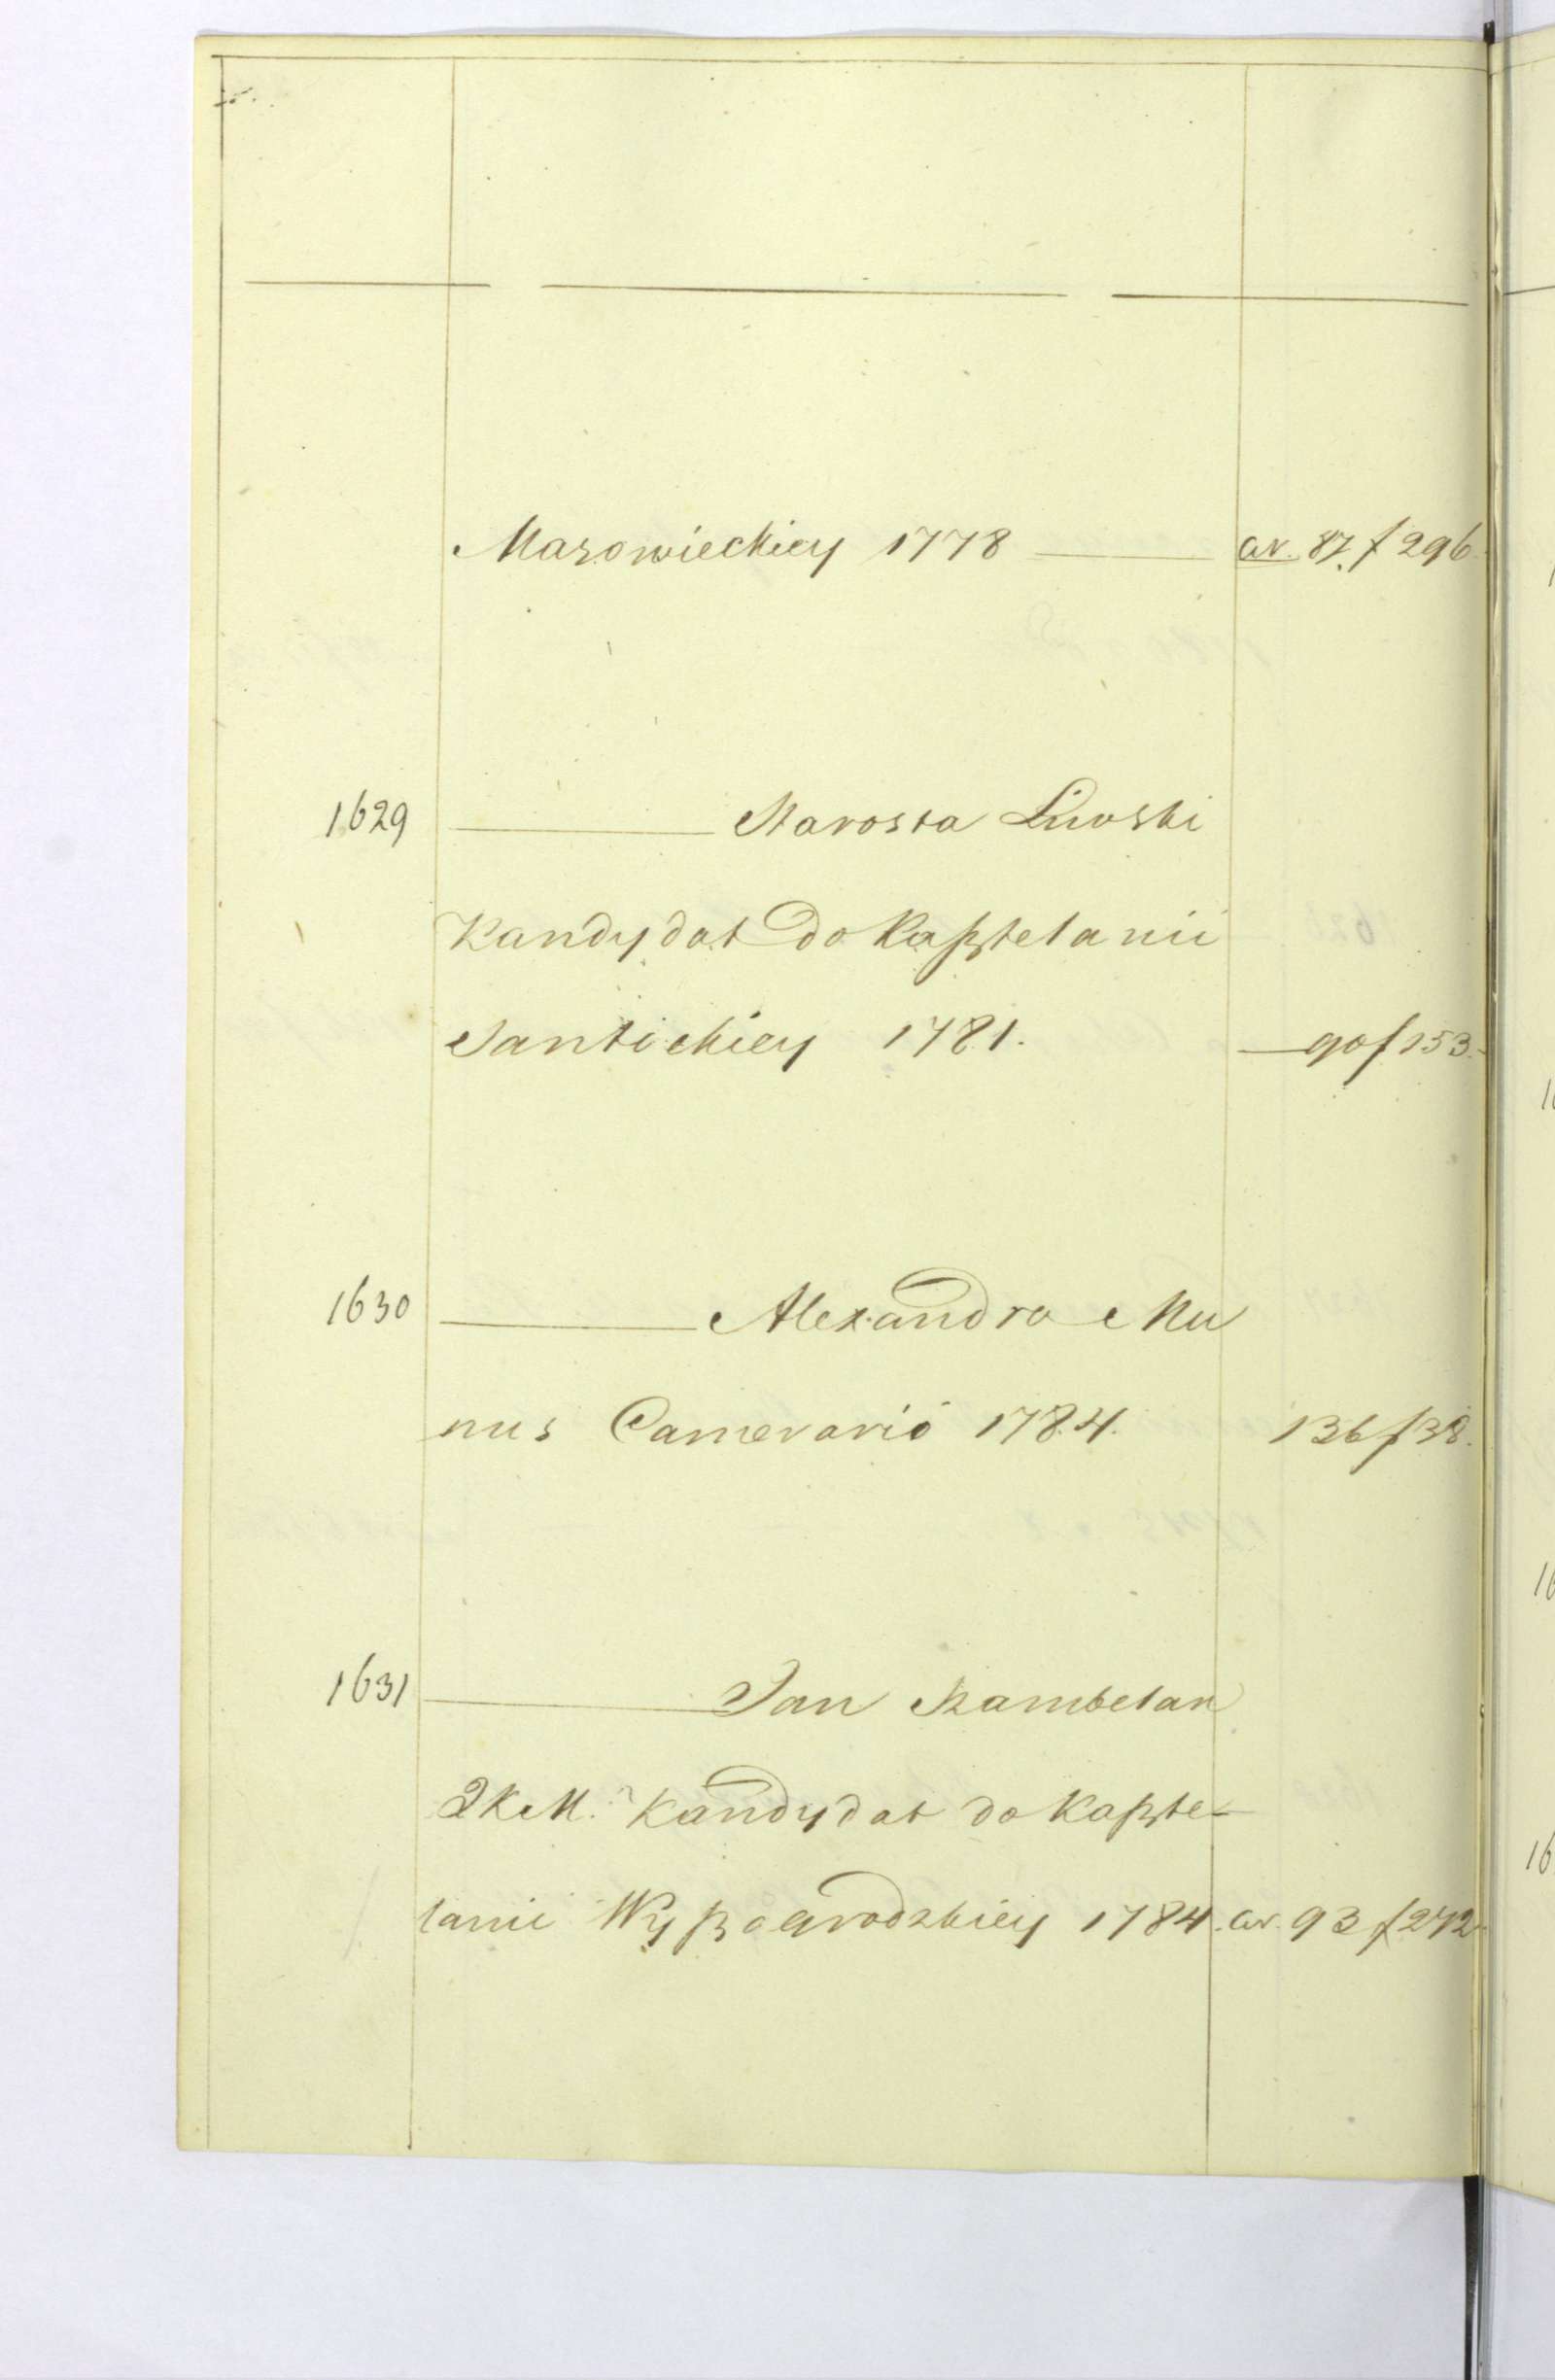 Mazowieckiey 1778 ——— av. 87. f 296.
1629 ——— Starosta Liwski
Kandydat do Kasztelanii
Santockiey 1781. — 90 f 153.
1630 ——— Alexandro Mu
nus Camerarii 1784. 136 f 38.
1631 ——— Jan Szambelan
JKM. Kandydat do Kaszte-
lanii Wyszogrodzkiey 1784. av. 93 f 272